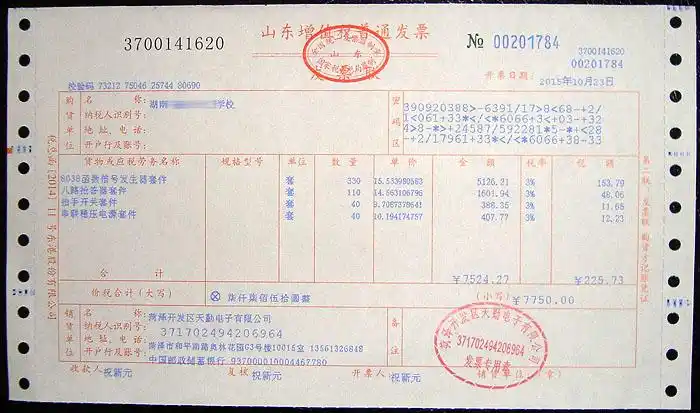 3700141620
山东增值税普通发票
№ 00201784
3700141620
00201784
开票日期: 2015年10月23日
校验码 73212 75046 25744 80690
购货单位
名 称: 湖南 学校
纳税人识别号:
地 址、电 话:
开户行及账号:
密码区
390920388>-6391/17>8<68-+2/
1<061+33*</<*6066+3<+03-+32
4>8-*>+24587/592281*5-*+<28
-+2/17961+33*</<*6066+38-33
货物或应税劳务名称 规格型号 单位 数 量 单 价 金 额 税率 税 额
8038函数信号发生器套件 套 330 15.533980583 5126.21 3% 153.79
八路抢答器套件 套 110 14.563106796 1601.94 3% 48.06
拍手开关套件 套 40 9.7087378641 388.35 3% 11.65
串联稳压电源套件 套 40 10.194174757 407.77 3% 12.23
合 计 ￥7524.27 ￥225.73
价税合计（大写） ⊗ 柒仟柒佰伍拾圆整 （小写）￥7750.00
销货单位
名 称: 菏泽开发区天勤电子有限公司
纳税人识别号: 371702494206964
地 址、电 话: 菏泽市和平南路奥林花园G3号楼10015室 13561326848
开户行及账号: 中国邮政储蓄银行 937000010004467780
备注
菏泽开发区天勤电子有限公司
371702494206964
发票专用章
收款人: 祝新元 复核: 祝新元 开票人: 祝新元 销货单位:（章）
第二联：发票联 购货方记账凭证